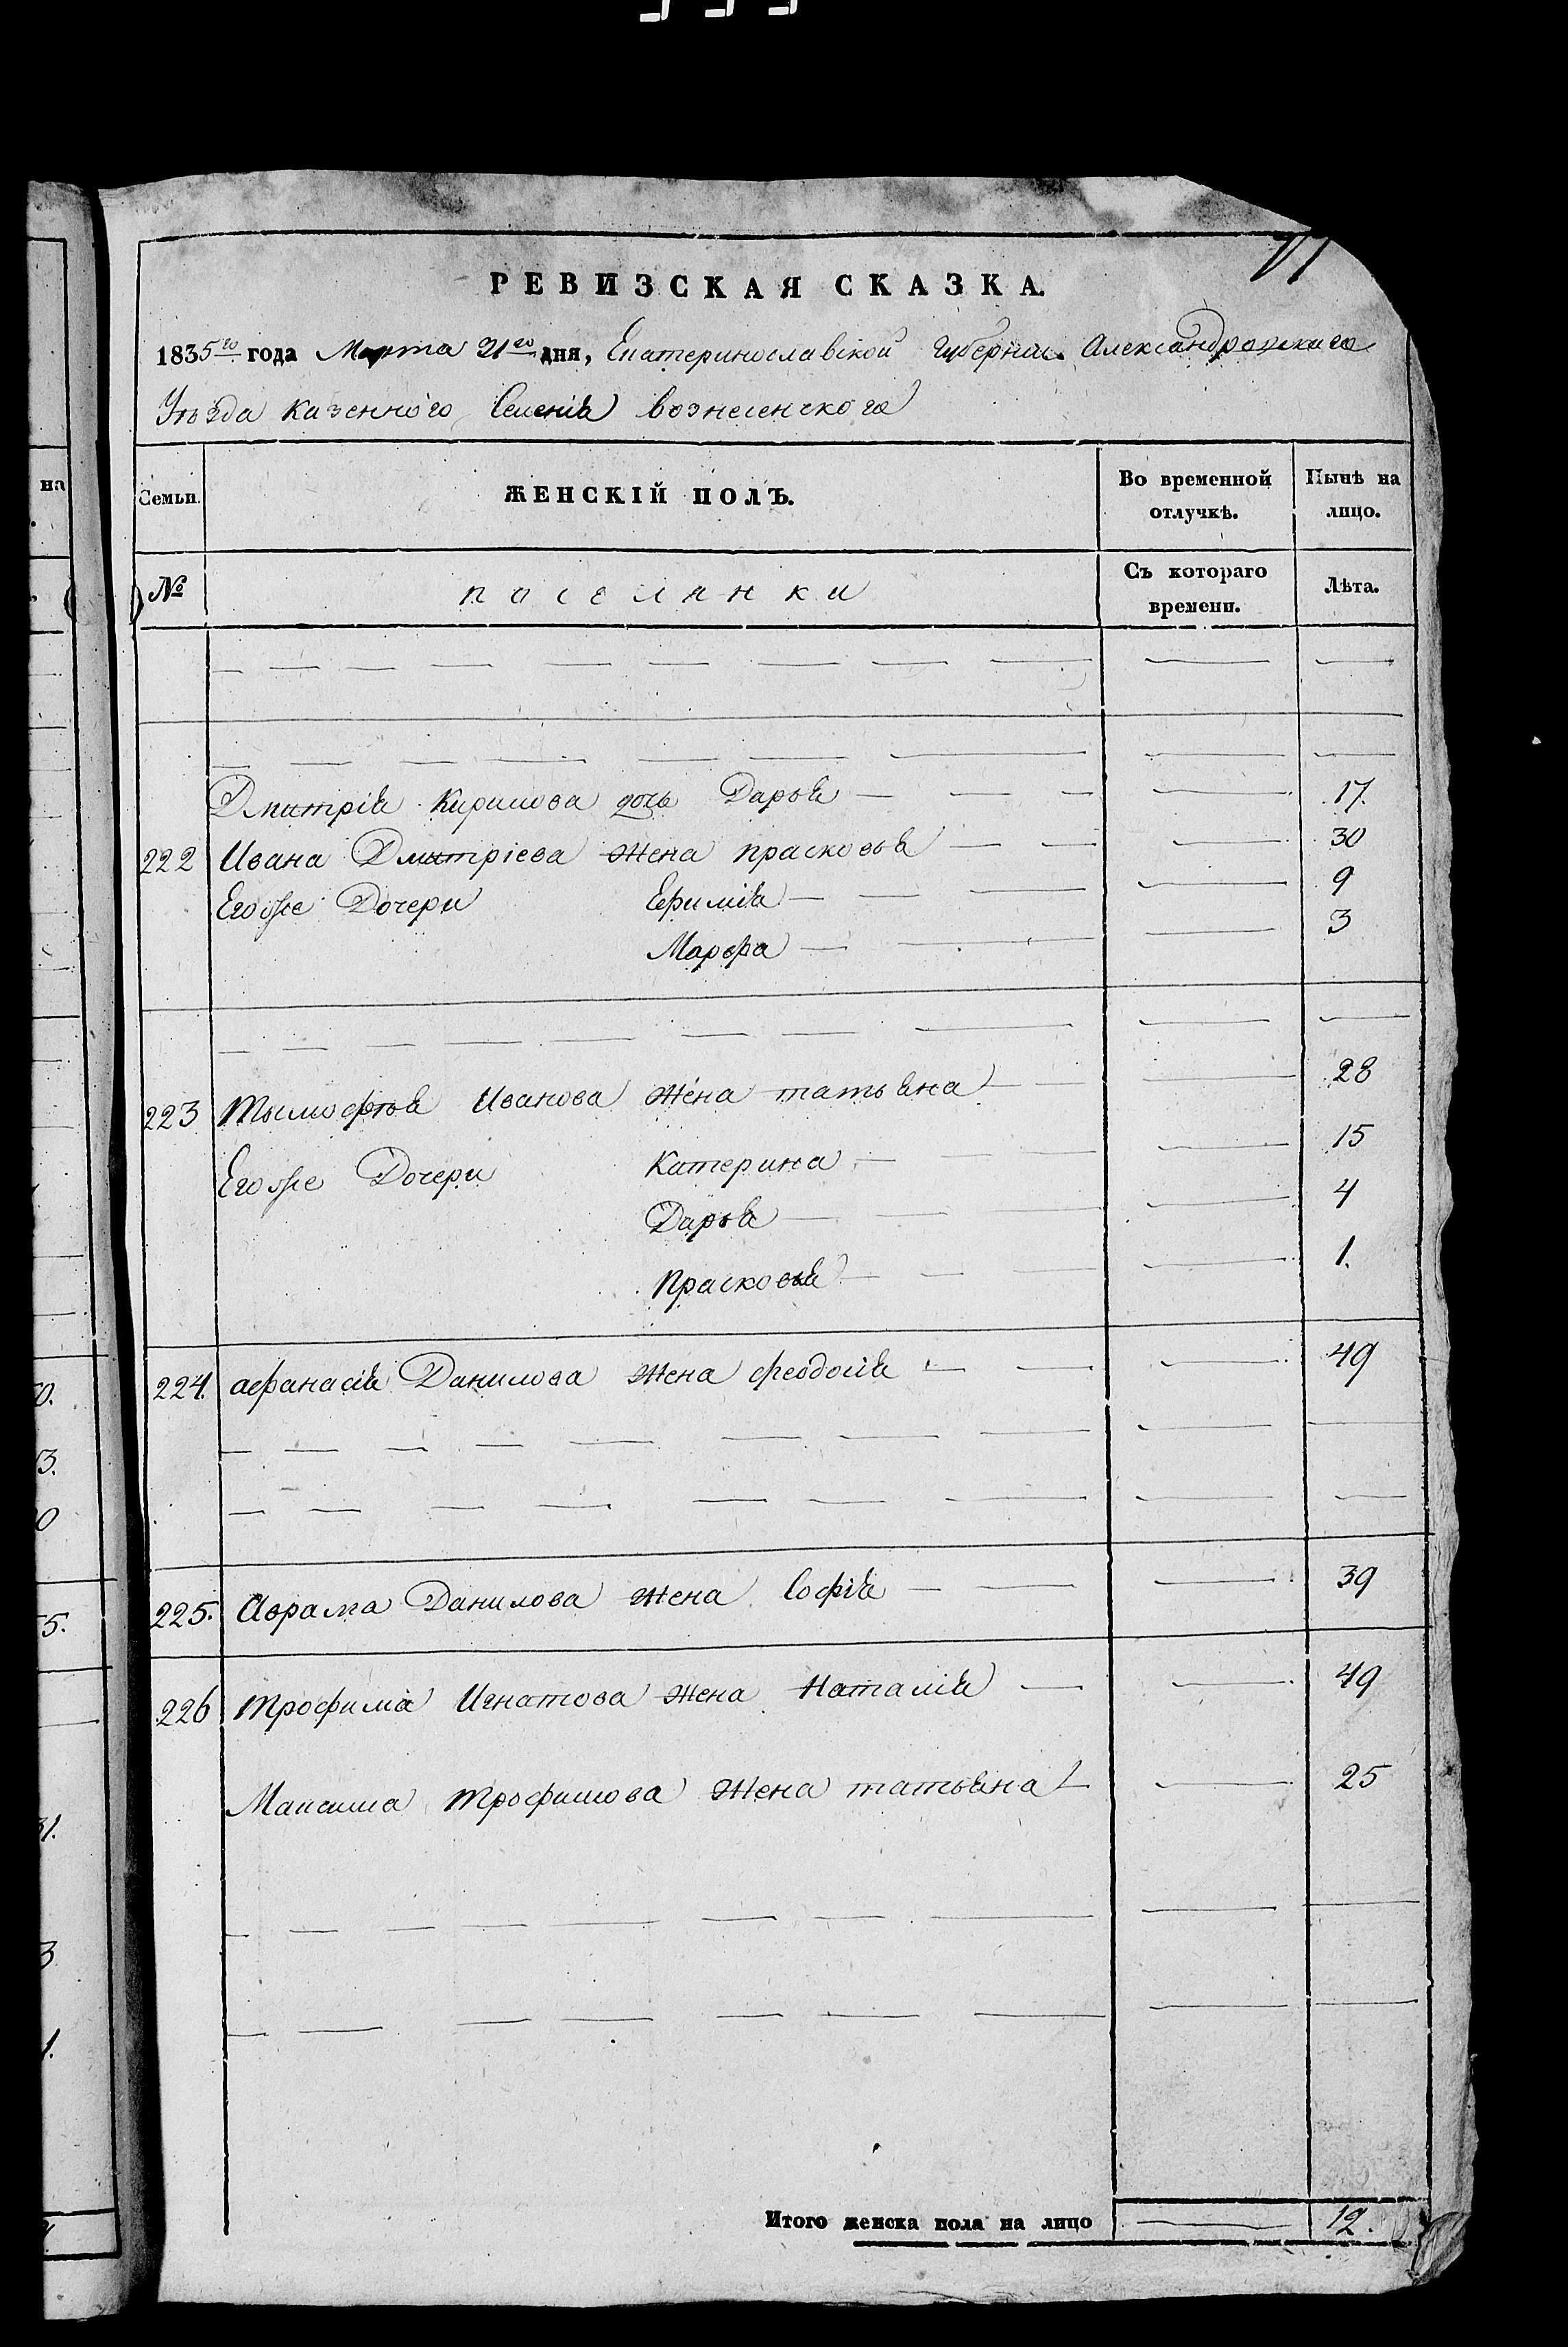 71
РЕВИЗСКАЯ СКАЗКА.
1835го года Марта 21го дня, Екатеринославской Губернии Александровскаго
Уѣзда казенного Селенія вознесенского
Семьи. ЖЕНСКІЙ ПОЛЪ. Во временной отлучкѣ. Нынѣ на лицо.
№ поселянки Съ котораго времени. Лѣта.
Дмитрія Кирилова дочь Дарья 17.
222 Ивана Дмитріева Жена прасковья 30
Егоже Дочери Ефимія 9
Марфа 3
223 Тымофѣя Иванова Жена татьяна 28
Егоже Дочери Катерина 15
Дарья 4
Прасковья 1.
224. афанасія Данилова Жена феодосія 49
225. Аврама Данилова Жена Софія 39
226 Трофима Игнатова Жена Наталія 49
Максима Трофимова Жена татьяна 25
Итого женска пола на лицо 12.